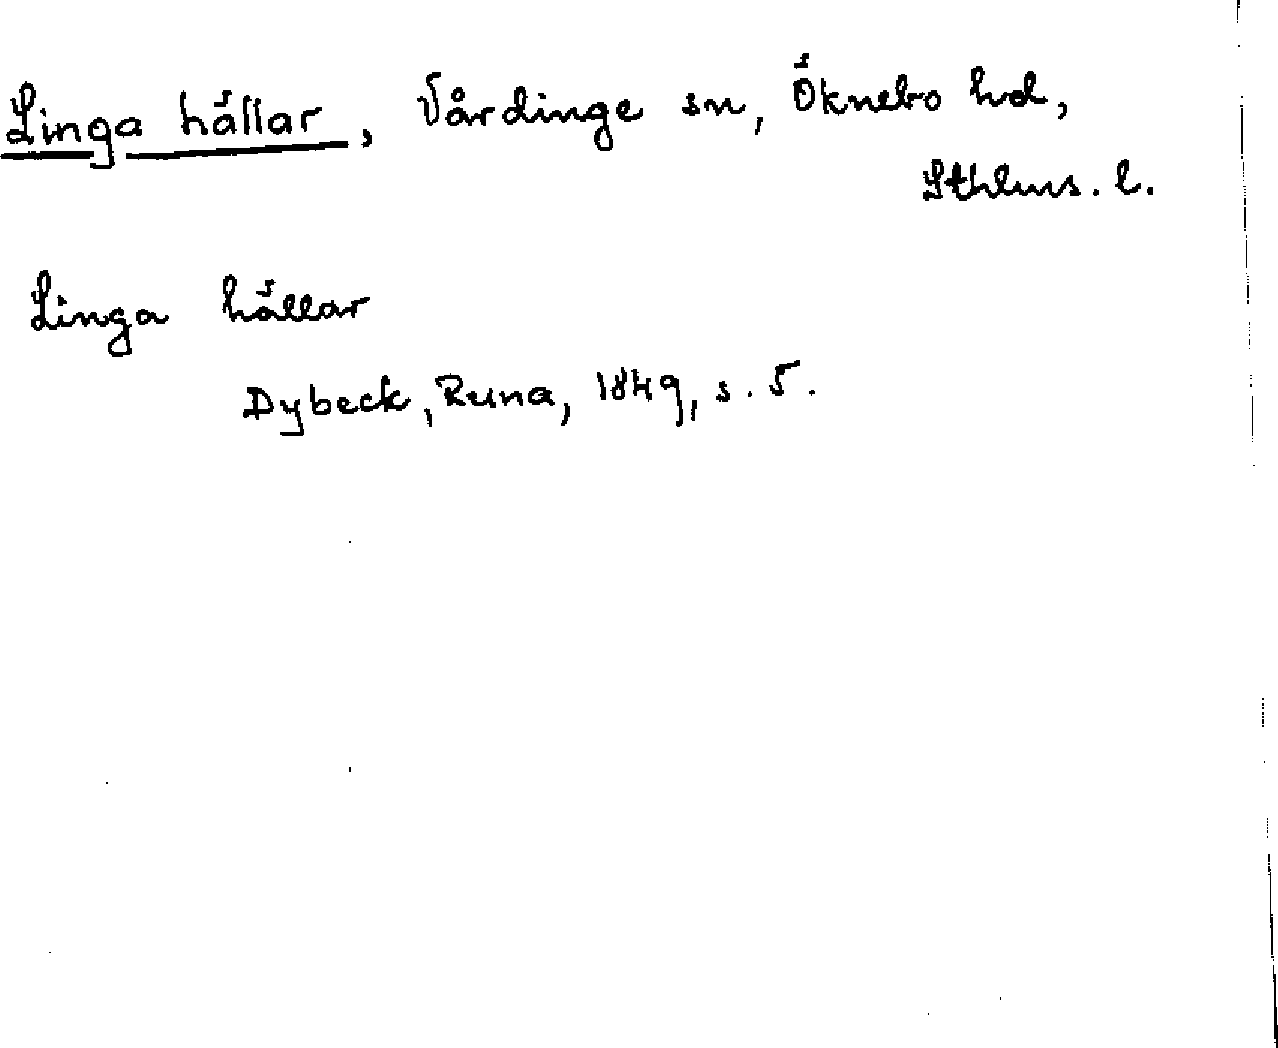 Linga hällar, Vårdinge sn, Öknebo hd,
Sthlms. l.
Linga hällar
Dybeck, Runa, 1849, s. 5.